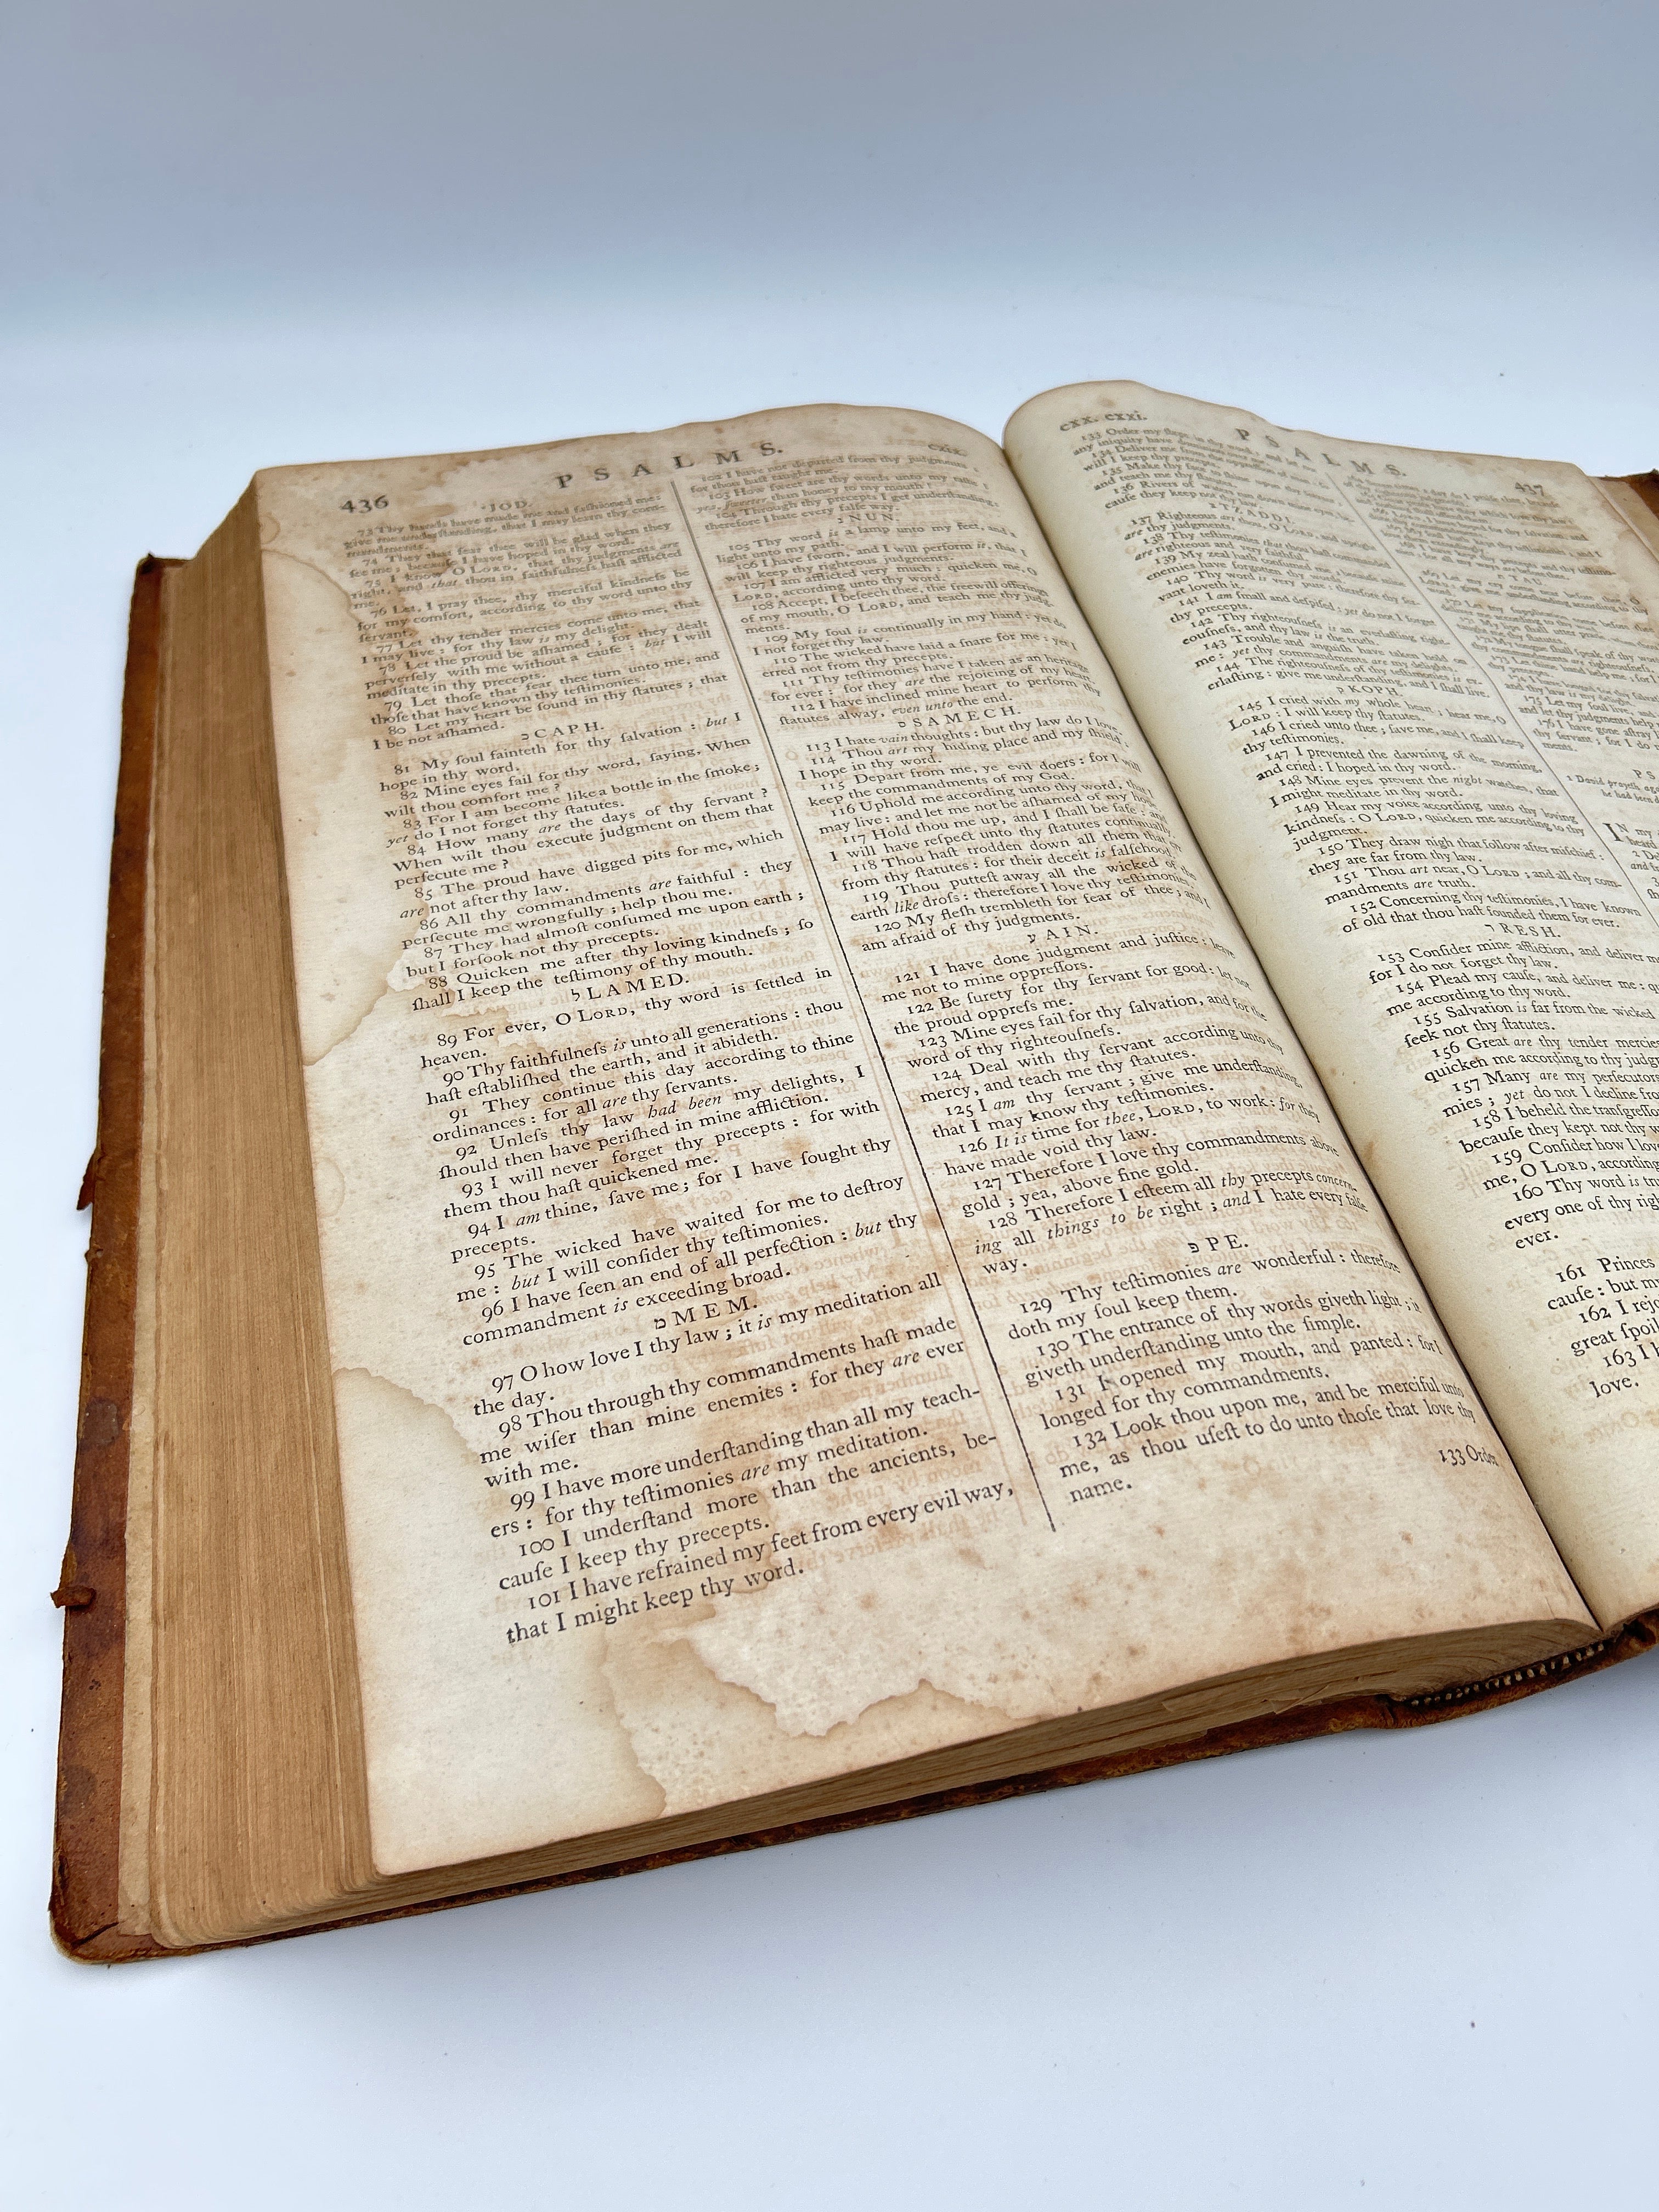 436
PSALMS.
cxix.
JOD.
73 Thy hands have made me and faſhioned me:
give me underſtanding, that I may learn thy com-
mandments.
74 They that fear thee will be glad when they
ſee me; becauſe I have hoped in thy word.
75 I know, O LORD, that thy judgments are
right, and that thou in faithfulneſs haſt afflicted
me.
76 Let, I pray thee, thy merciful kindneſs be
for my comfort, according to thy word unto thy
ſervant.
77 Let thy tender mercies come unto me, that
I may live: for thy law is my delight.
78 Let the proud be aſhamed; for they dealt
perverſely with me without a cauſe: but I will
meditate in thy precepts.
79 Let thoſe that fear thee turn unto me, and
thoſe that have known thy teſtimonies.
80 Let my heart be found in thy ſtatutes; that
I be not aſhamed.
כ CAPH.
81 My ſoul fainteth for thy ſalvation: but I
hope in thy word.
82 Mine eyes fail for thy word, ſaying, When
wilt thou comfort me?
83 For I am become like a bottle in the ſmoke;
yet do I not forget thy ſtatutes.
84 How many are the days of thy ſervant?
When wilt thou execute judgment on them that
perſecute me?
85 The proud have digged pits for me, which
are not after thy law.
86 All thy commandments are faithful: they
perſecute me wrongfully; help thou me.
87 They had almoſt conſumed me upon earth;
but I forſook not thy precepts.
88 Quicken me after thy loving kindneſs; ſo
ſhall I keep the teſtimony of thy mouth.
ל LAMED.
89 For ever, O LORD, thy word is ſettled in
heaven.
90 Thy faithfulneſs is unto all generations: thou
haſt eſtabliſhed the earth, and it abideth.
91 They continue this day according to thine
ordinances: for all are thy ſervants.
92 Unleſs thy law had been my delights, I
ſhould then have periſhed in mine affliction.
93 I will never forget thy precepts: for with
them thou haſt quickened me.
94 I am thine, ſave me; for I have ſought thy
precepts.
95 The wicked have waited for me to deſtroy
me: but I will conſider thy teſtimonies.
96 I have ſeen an end of all perfection: but thy
commandment is exceeding broad.
מ MEM.
97 O how love I thy law; it is my meditation all
the day.
98 Thou through thy commandments haſt made
me wiſer than mine enemies: for they are ever
with me.
99 I have more underſtanding than all my teach-
ers: for thy teſtimonies are my meditation.
100 I underſtand more than the ancients, be-
cauſe I keep thy precepts.
101 I have refrained my feet from every evil way,
that I might keep thy word.
102 I have not departed from thy judgments:
for thou haſt taught me.
103 How ſweet are thy words unto my taſte!
yea, ſweeter than honey to my mouth!
104 Through thy precepts I get underſtanding:
therefore I hate every falſe way.
נ NUN.
105 Thy word is a lamp unto my feet, and a
light unto my path.
106 I have ſworn, and I will perform it, that I
will keep thy righteous judgments.
107 I am afflicted very much: quicken me, O
LORD, according unto thy word.
108 Accept, I beſeech thee, the freewill offerings
of my mouth, O LORD, and teach me thy judg-
ments.
109 My ſoul is continually in my hand: yet do
I not forget thy law.
110 The wicked have laid a ſnare for me: yet I
erred not from thy precepts.
111 Thy teſtimonies have I taken as an heritage
for ever: for they are the rejoicing of my heart.
112 I have inclined mine heart to perform thy
ſtatutes alway, even unto the end.
ס SAMECH.
113 I hate vain thoughts: but thy law do I love.
114 Thou art my hiding place and my ſhield:
I hope in thy word.
115 Depart from me, ye evil doers: for I will
keep the commandments of my God.
116 Uphold me according unto thy word, that I
may live: and let me not be aſhamed of my hope.
117 Hold thou me up, and I ſhall be ſafe: and
I will have reſpect unto thy ſtatutes continually.
118 Thou haſt trodden down all them that err
from thy ſtatutes: for their deceit is falſehood.
119 Thou putteſt away all the wicked of the
earth like droſs: therefore I love thy teſtimonies.
120 My fleſh trembleth for fear of thee; and I
am afraid of thy judgments.
ע AIN.
121 I have done judgment and juſtice: leave
me not to mine oppreſſors.
122 Be ſurety for thy ſervant for good: let not
the proud oppreſs me.
123 Mine eyes fail for thy ſalvation, and for the
word of thy righteouſneſs.
124 Deal with thy ſervant according unto thy
mercy, and teach me thy ſtatutes.
125 I am thy ſervant; give me underſtanding,
that I may know thy teſtimonies.
126 It is time for thee, LORD, to work: for they
have made void thy law.
127 Therefore I love thy commandments above
gold; yea, above fine gold.
128 Therefore I eſteem all thy precepts concern-
ing all things to be right; and I hate every falſe
way.
פ PE.
129 Thy teſtimonies are wonderful: therefore
doth my ſoul keep them.
130 The entrance of thy words giveth light; it
giveth underſtanding unto the ſimple.
131 I opened my mouth, and panted: for I
longed for thy commandments.
132 Look thou upon me, and be merciful unto
me, as thou uſeſt to do unto thoſe that love thy
name.
133 Order
cxx. cxxi.
PSALMS.
437
133 Order my ſteps in thy word: and let not
any iniquity have dominion over me.
134 Deliver me from the oppreſſion of man: ſo
will I keep thy precepts.
135 Make thy face to ſhine upon thy ſervant;
and teach me thy ſtatutes.
136 Rivers of waters run down mine eyes, be-
cauſe they keep not thy law.
TZADDI.
137 Righteous art thou, O LORD, and upright
are thy judgments.
138 Thy teſtimonies that thou haſt commanded
are righteous and very faithful.
139 My zeal hath conſumed me, becauſe mine
enemies have forgotten thy words.
140 Thy word is very pure: therefore thy ſer-
vant loveth it.
141 I am ſmall and deſpiſed: yet do not I forget
thy precepts.
142 Thy righteouſneſs is an everlaſting right-
eouſneſs, and thy law is the truth.
143 Trouble and anguiſh have taken hold on
me: yet thy commandments are my delights.
144 The righteouſneſs of thy teſtimonies is ev-
erlaſting: give me underſtanding, and I ſhall live.
ק KOPH.
145 I cried with my whole heart; hear me, O
LORD: I will keep thy ſtatutes.
146 I cried unto thee; ſave me, and I ſhall keep
thy teſtimonies.
147 I prevented the dawning of the morning,
and cried: I hoped in thy word.
148 Mine eyes prevent the night watches, that
I might meditate in thy word.
149 Hear my voice according unto thy loving
kindneſs: O LORD, quicken me according to thy
judgment.
150 They draw nigh that follow after miſchief:
they are far from thy law.
151 Thou art near, O LORD; and all thy com-
mandments are truth.
152 Concerning thy teſtimonies, I have known
of old that thou haſt founded them for ever.
ר RESH.
153 Conſider mine affliction, and deliver me
for I do not forget thy law.
154 Plead my cauſe, and deliver me:
me according to thy word.
155 Salvation is far from the wicked
ſeek not thy ſtatutes.
156 Great are thy tender mercies
quicken me according to thy judg
157 Many are my perſecutors
mies; yet do not I decline fro
158 I beheld the tranſgreſſo
becauſe they kept not thy w
159 Conſider how I love
me, O LORD, according
160 Thy word is tru
every one of thy righ
ever.
161 Princes
cauſe: but my
162 I rejo
great ſpoil
163 I h
love.